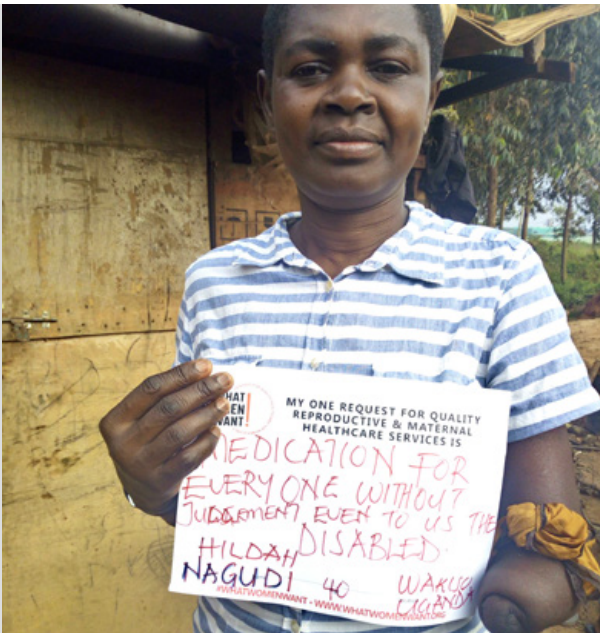 HAT
EN
ANT!
MY ONE REQUEST FOR QUALITY
REPRODUCTIVE & MATERNAL
HEALTHCARE SERVICES IS
MEDICATION FOR
EVERYONE WITHOUT
JUDGEMENT EVEN TO US THE
DISABLED.
HILDAH
NAGUDI 40 WAKISO
UGANDA
#WHATWOMENWANT - WWW.WHATWOMENWANT.ORG